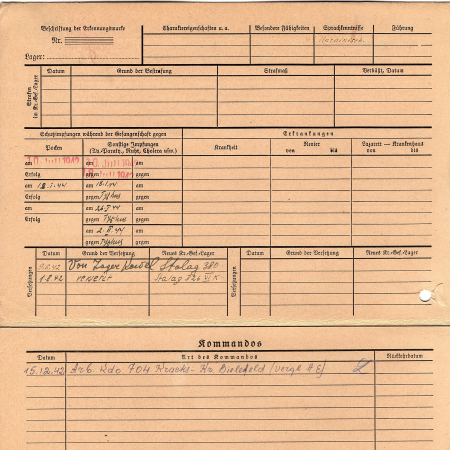 Beschriftung der Erkennungsmarke
Nr.
Lager:
Charaktereigenschaften u. a.
Besondere Fähigkeiten
Sprachkenntnisse
Führung
Strafen im Kr.-Gef.-Lager
Datum Grund der Bestrafung Strafmaß Verbüßt, Datum
Schutzimpfungen während der Gefangenschaft gegen
Erkrankungen
Pocken
Sonstige Impfungen
(Ty.-Paraty., Ruhr, Cholera usw.)
Krankheit
Revier
von bis
Lazarett - Krankenhaus
von bis
am am am
Erfolg gegen gegen
am 18.I.44 am 18.I.44 am
Erfolg gegen Typhus gegen
am am 26.I 44 am
Erfolg gegen Typhus gegen
am 2.II 44 am
gegen Typhus gegen
Versetzungen
Datum Grund der Versetzung Neues Kr.-Gef.-Lager
Versetzungen
Datum Grund der Versetzung Neues Kr.-Gef.-Lager
Von Lager Stalag 380
1.8.42 versetzt Stalag 326 VI K
Kommandos
Datum Art des Kommandos Rückkehrdatum
15.12.42 Arb. Kdo 704 Kracks- Kr. Bielefeld